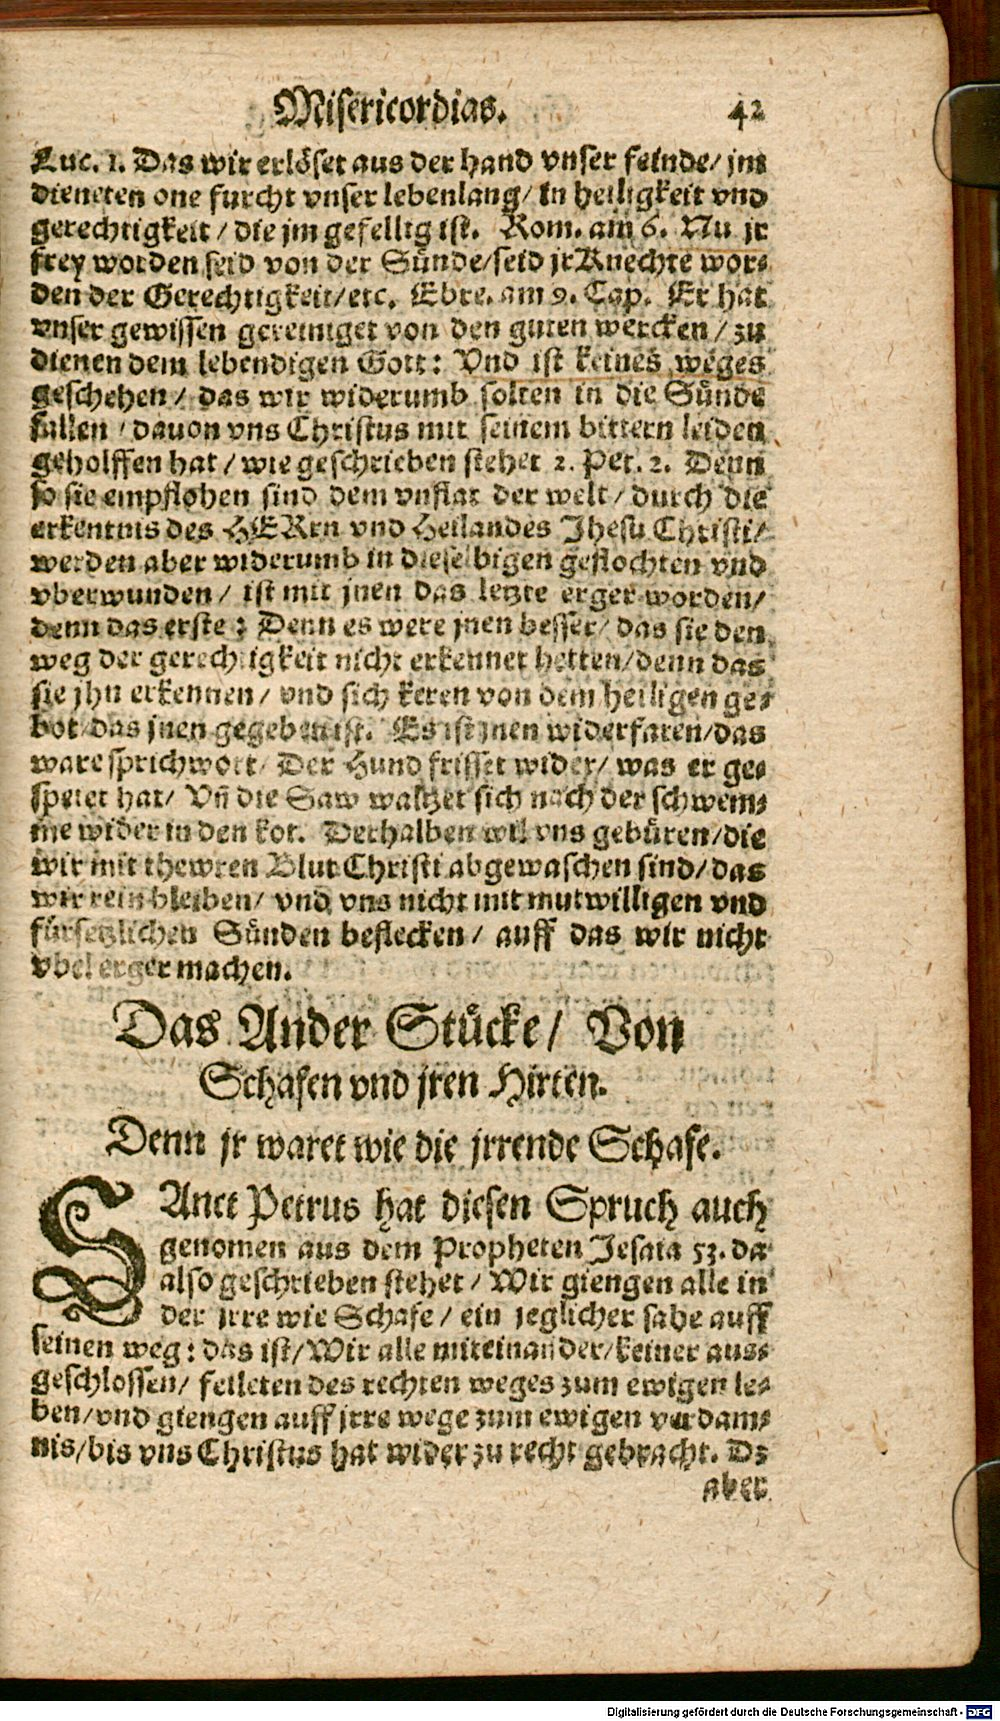 Misericordias. 42
Luc. 1. Das wir erlöset aus der hand vnser feinde/ jm
dieneten one furcht vnser lebenlang/ in heiligkeit vnd
gerechtigkeit / die jm gefellig ist. Rom. am 6. Nu jr
frey worden seid von der Sünde/seid jr Knechte wor⸗
den der Gerechtigkeit/etc. Ebre. am 9. Cap. Er hat
vnser gewissen gereiniget von den guten wercken / zu
dienen dem lebendigen Gott: Vnd ist keines weges
geschehen / das wir widerumb solten in die Sünde
fallen / dauon vns Christus mit seinem bittern leiden
geholffen hat / wie geschrieben stehet 2. Pet. 2. Denn
so sie empflohen sind dem vnflat der welt / durch die
erkentnis des HERrn vnd Heilandes Jhesu Christi/
werden aber widerumb in dieselbigen geflochten vnd
vberwunden / ist mit jnen das letzte erger worden/
denn das erste: Denn es were jnen besser/ das sie den
weg der gerechtigkeit nicht erkennet hetten/denn das
sie jhn erkennen/ vnd sich keren von dem heiligen ge⸗
bot/das jnen gegeben ist. Es ist jnen widerfaren/das
ware sprichwort/ Der Hund frisset wider/ was er ge⸗
speiet hat/ Vn̄ die Saw waltzet sich nach der schwem⸗
me wider in den kot. Derhalben wil vns gebüren/die
wir mit thewren Blut Christi abgewaschen sind/das
wir rein bleiben/ vnd vns nicht mit mutwilligen vnd
fürsetzlichen Sünden beflecken / auff das wir nicht
vbel erger machen.
Das Ander Stücke/ Von
Schafen vnd jren Hirten.
Denn jr waret wie die jrrende Schafe.
SAnct Petrus hat diesen Spruch auch
genomen aus dem Propheten Jesaia 53. da
also geschrieben stehet / Wir giengen alle in
der jrre wie Schafe / ein jeglicher sahe auff
seinen weg: das ist/Wir alle miteinander/keiner aus⸗
geschlossen/ feileten des rechten weges zum ewigen le⸗
ben/vnd giengen auff jrre wege zum ewigen verdam⸗
nis/bis vns Christus hat wider zu recht gebracht. Dz
aber
Digitalisierung gefördert durch die Deutsche Forschungsgemeinschaft - DFG